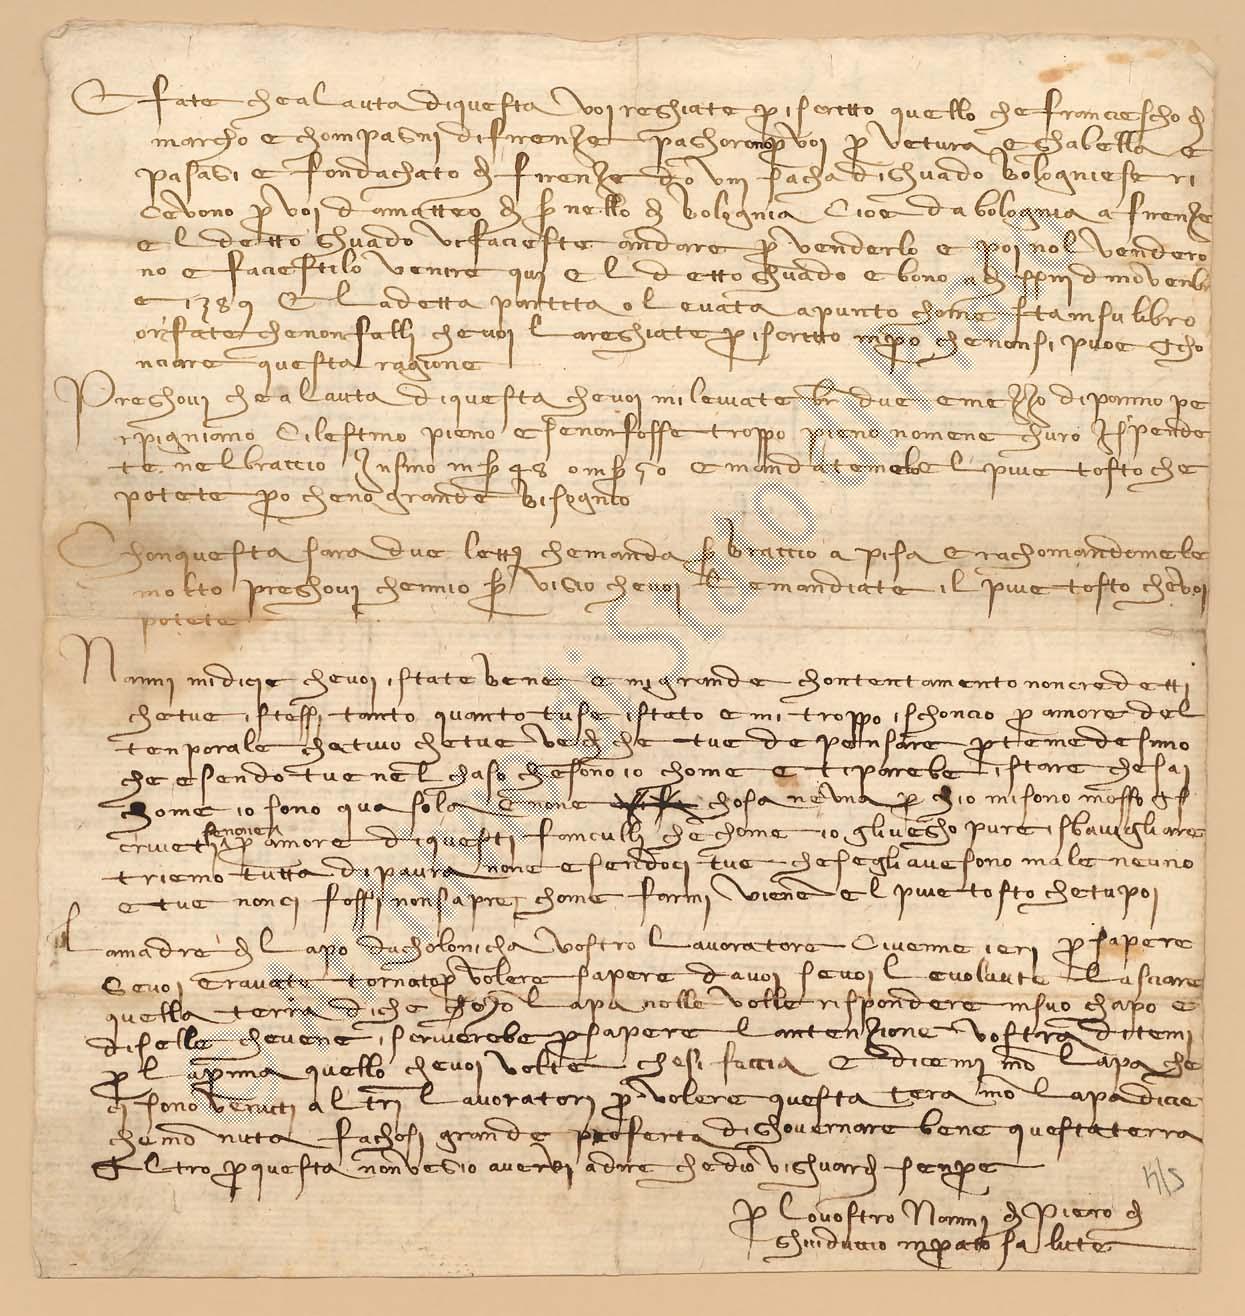 E fate che a l'auta di questa voi reghiate p iscritto quello che Franciescho di
Marcho e chompagni di Firenze pagharono p voi p vetura e ghabella e
pasagi e fondachato di Firenze do VIII sacha di ghuado bolognese ri
cievono p voi da Matteo di s nello di Bolognia cioè da Bolognia a Firenze
e l detto ghuado vi facieste andare p venderlo e poi nol vendero
no e faciestilo venire qui e l detto ghuado e bono a di d novenbr
e 1389 E la detta partita o levata apunto chome sta in su libro
or fate che non falli che voi l areghiate p iscritto inpo che non si puoe cho
nciare questa ragione
Preghovi che a l auta di questa che voi mi leviate br due e mezzo di panno pe
rpigniano cilestrino pieno e se non fosse troppo pieno no me ne churo ispende
te nel braccio insino in s 48 o in s 50 e mandatemelo el piue tosto che
potete po che n o grande bisognio
Chon questa sara due lett che manda s Braccio a Pisa e rachomandomele
molto preghovi che mio s visio che voi le mandiate il piue tosto che voi
potete
Nanni mi dicie che voi istate bene e mi grande chontentamento non credetti
che tue istessi tanto quanto tu se istato e mi troppo ischoncio p amore del
tenporale chattivo che tue vedi che tue de pensare p te medesimo
che esendo tue nel chaso che sono io chome e ti parebe istare che sai
chome io sono qua sola e none chosa neuna p ch io mi sono mosso a s
crivetti se none p amore di questi fanculli che chome io gli vegho pure isbavigliare
triemo tutta di paura none esendoci tue che s egli avesono male neuno
e tue non ci fossi non sapre chome farmi vienene el piue tosto che tu poi
La madre di Lapo da cholonicha vostro lavoratore ci venne ieri p sapere
se voi eravate tornato p volere sapere da voi se voi le volavate lasciare
quella terra di che mona Lapa nolle volle rispondere in suo chapo e
diselle che vene iscriverebe p sapere l antenzione vostra ditemi
p la prima quello che voi volete che si faccia E dicemi mo Lapa che
ci sono venuti altri lavoratori p volere questa tera mo Lapa dicie
che mo nuta fachosi grande proferta di ghovernare bene questa terra
Altro p questa non vegio avervi a dire che dio vi ghuardi senpre
P lo vostro Nanni di Piero di
Ghuiduccio in Prato salute